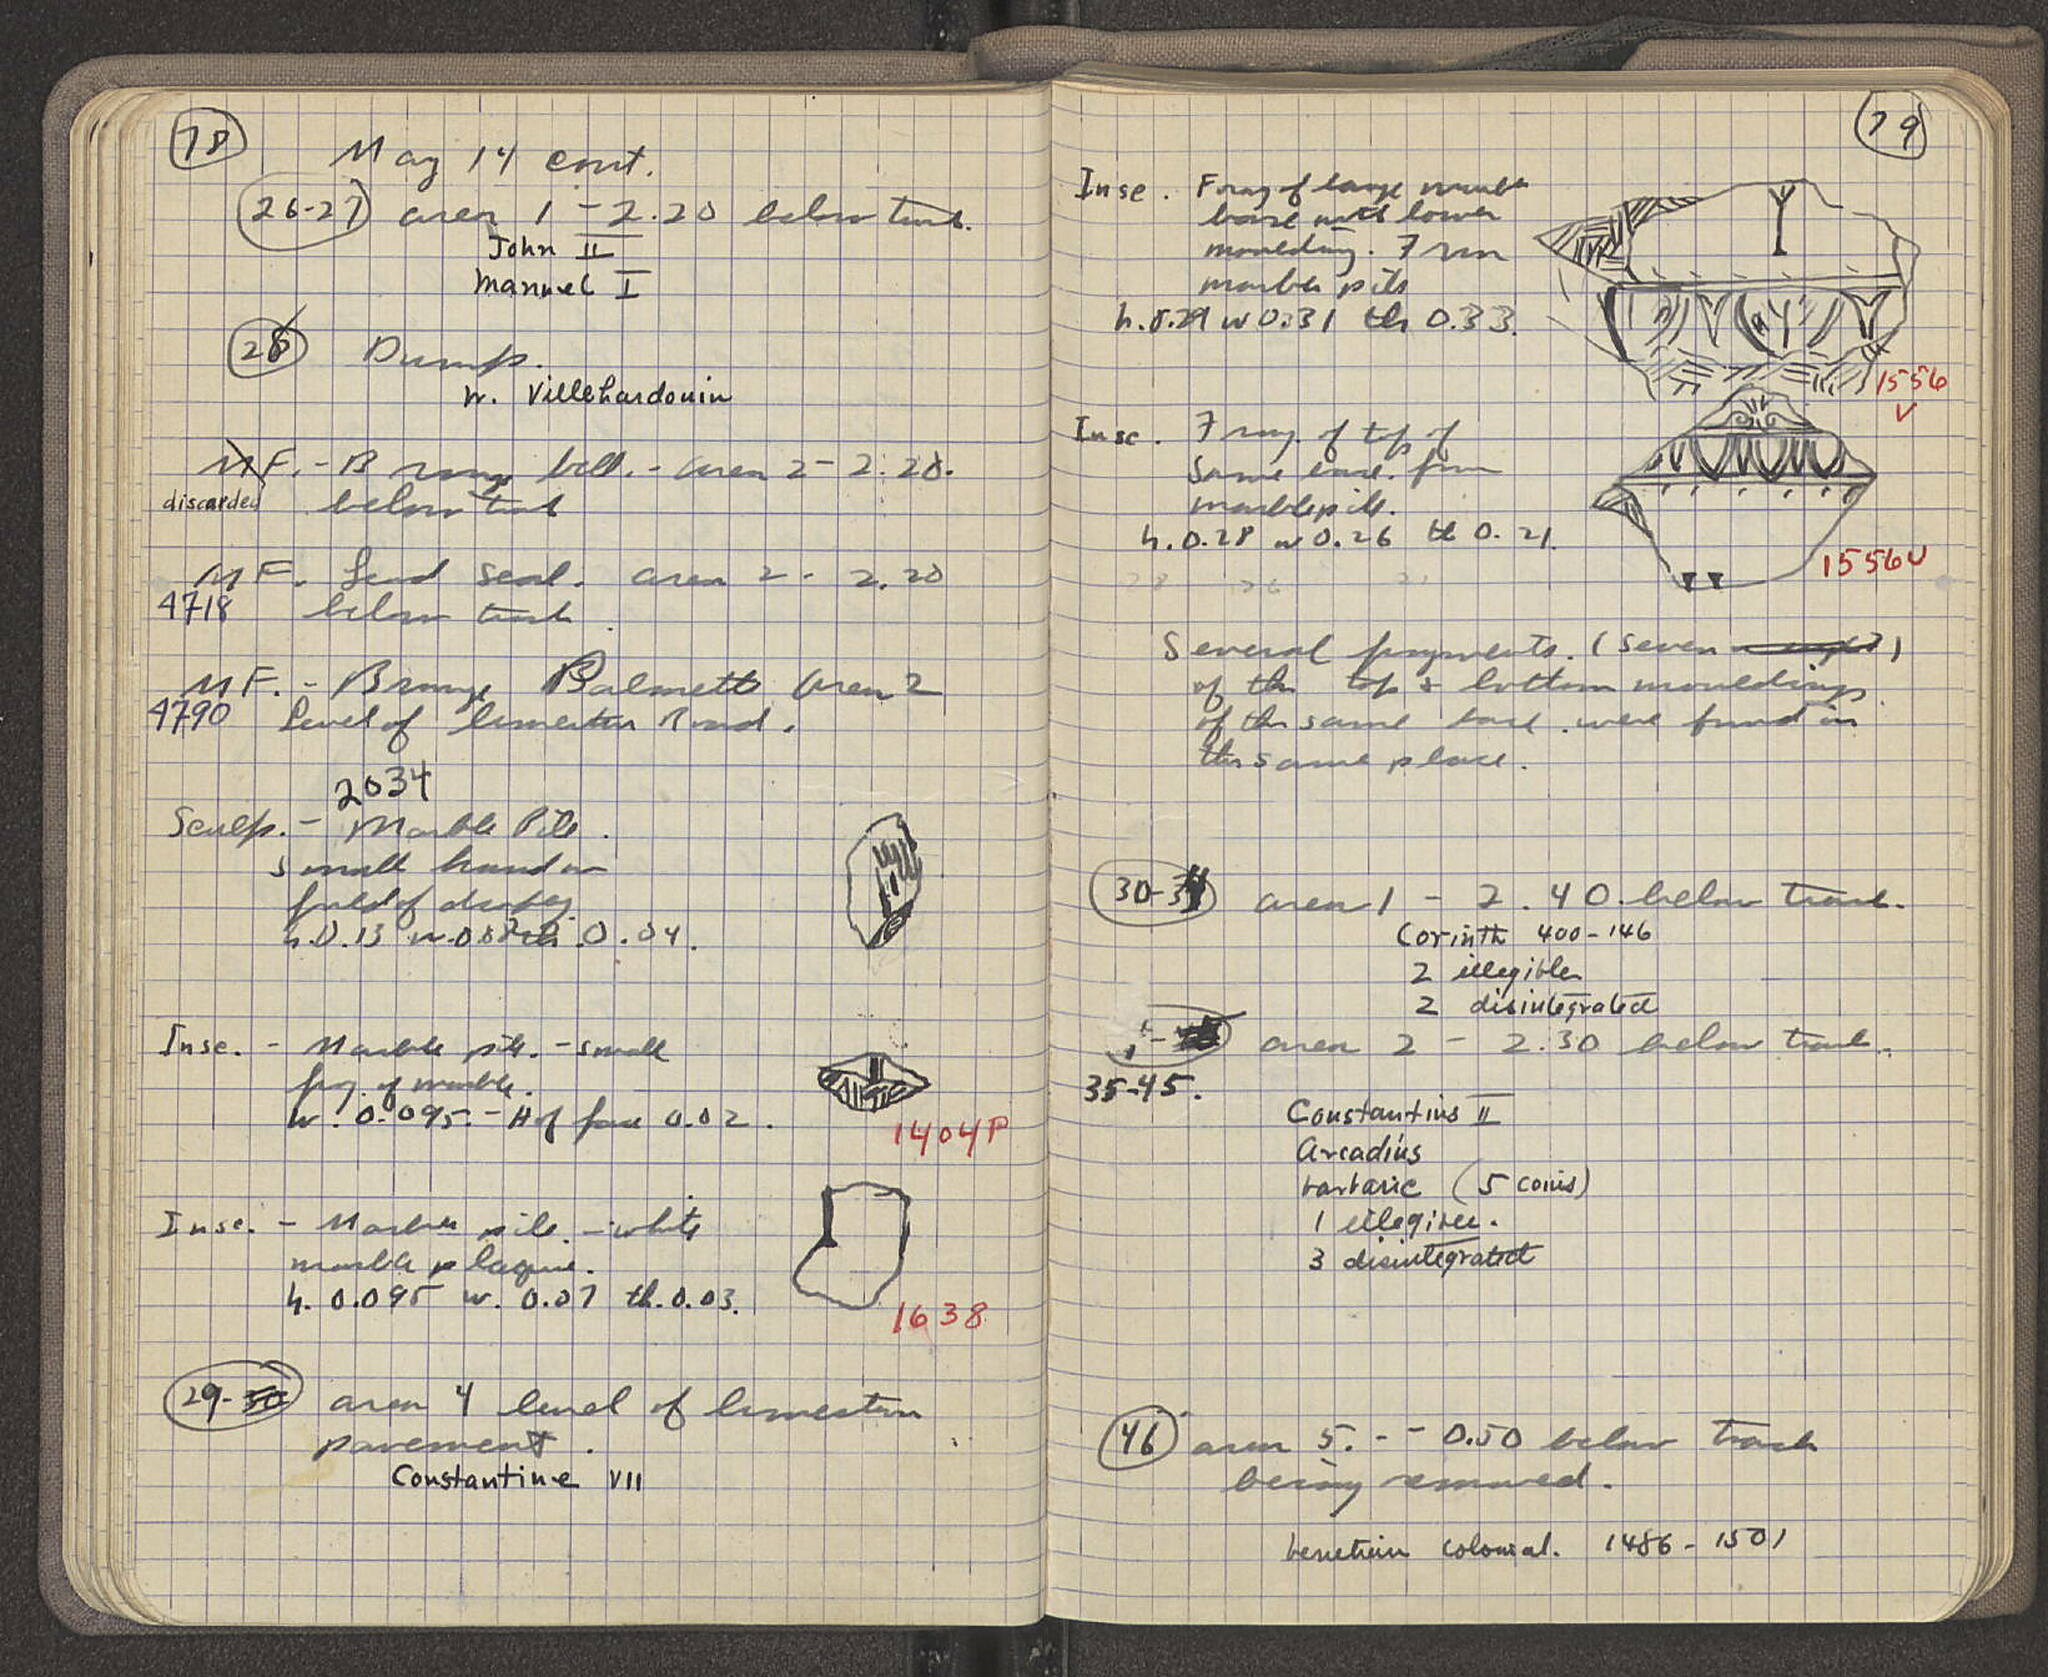 78
May 14 cont.
26-27 area 1 - 2.20 below track.
John II
Manuel I
28 Dump.
W. Villehardouin
MF. - Bronze bell. - area 2 - 2.20.
discarded below track
MF. Lead seal. area 2 - 2.20
4718 below track.
MF. - Bronze Palmette area 2
4790 level of limestone Road.
2034
Sculp. - Marble Pile.
Small hand in
fold of drapery
h. 0.13 w. 0.08 th. 0.04.
Insc. - Marble pile. - small
frag. of marble.
W. 0.095. - H of face 0.02.
1404P
Insc. - Marble pile. - white
marble plaque.
h. 0.095 w. 0.07 th. 0.03.
1638
29-30 area 4 level of limestone
pavement.
Constantine VII
79
Insc. Frag of large marble
base with lower
moulding. From
marble pile
h. 0.29 w 0.31 th 0.33.
1556
Insc. Frag. of top of
same base. from
marble pile.
h. 0.28 w 0.26 th 0.21.
28 26 21
1556
Several fragments. (seven)
of the top & bottom mouldings
of the same base were found in
the same place.
30-34 area 1 - 2.40 below track.
Corinth 400-146
2 illegible
2 disintegrated
area 2 - 2.30 below track.
35-45.
Constantius II
Arcadius
barbaric (5 coins)
1 illegible.
3 disintegrated
46 area 5. - - 0.50 below track
being removed.
Venetian colonial. 1486-1501